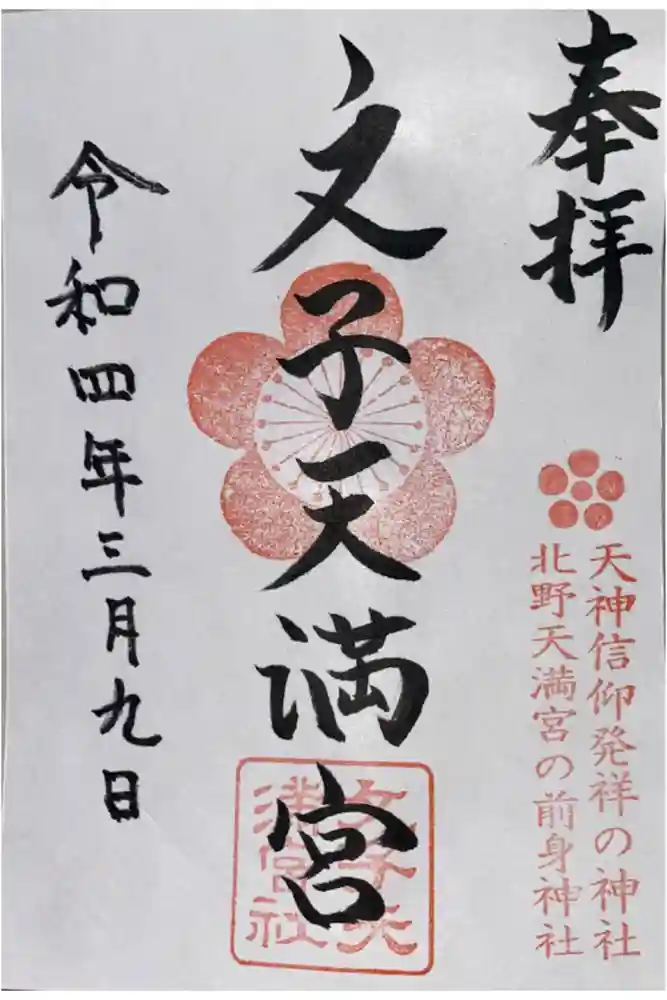 奉拝
天神信仰発祥の神社
北野天満宮の前身神社
文子天満宮
文子天
満宮社
令和四年三月九日